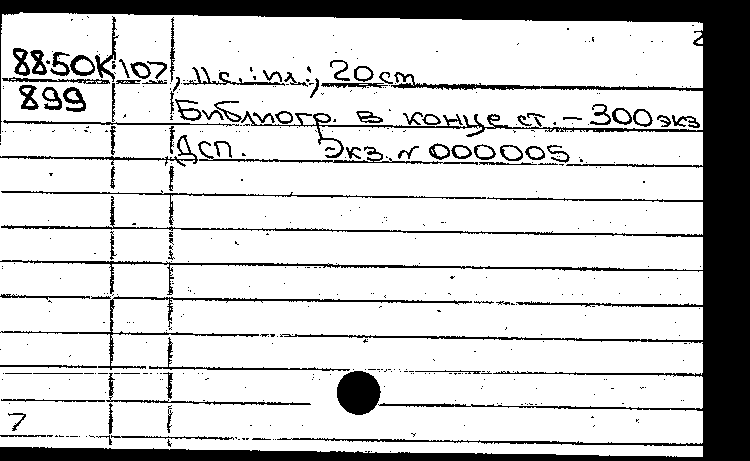 2
88-50К 107, 11 с. : ил.; 20 cm
899 Библиогр. в конце ст. – 300 экз
Дсп. Экз. № 000005.
7